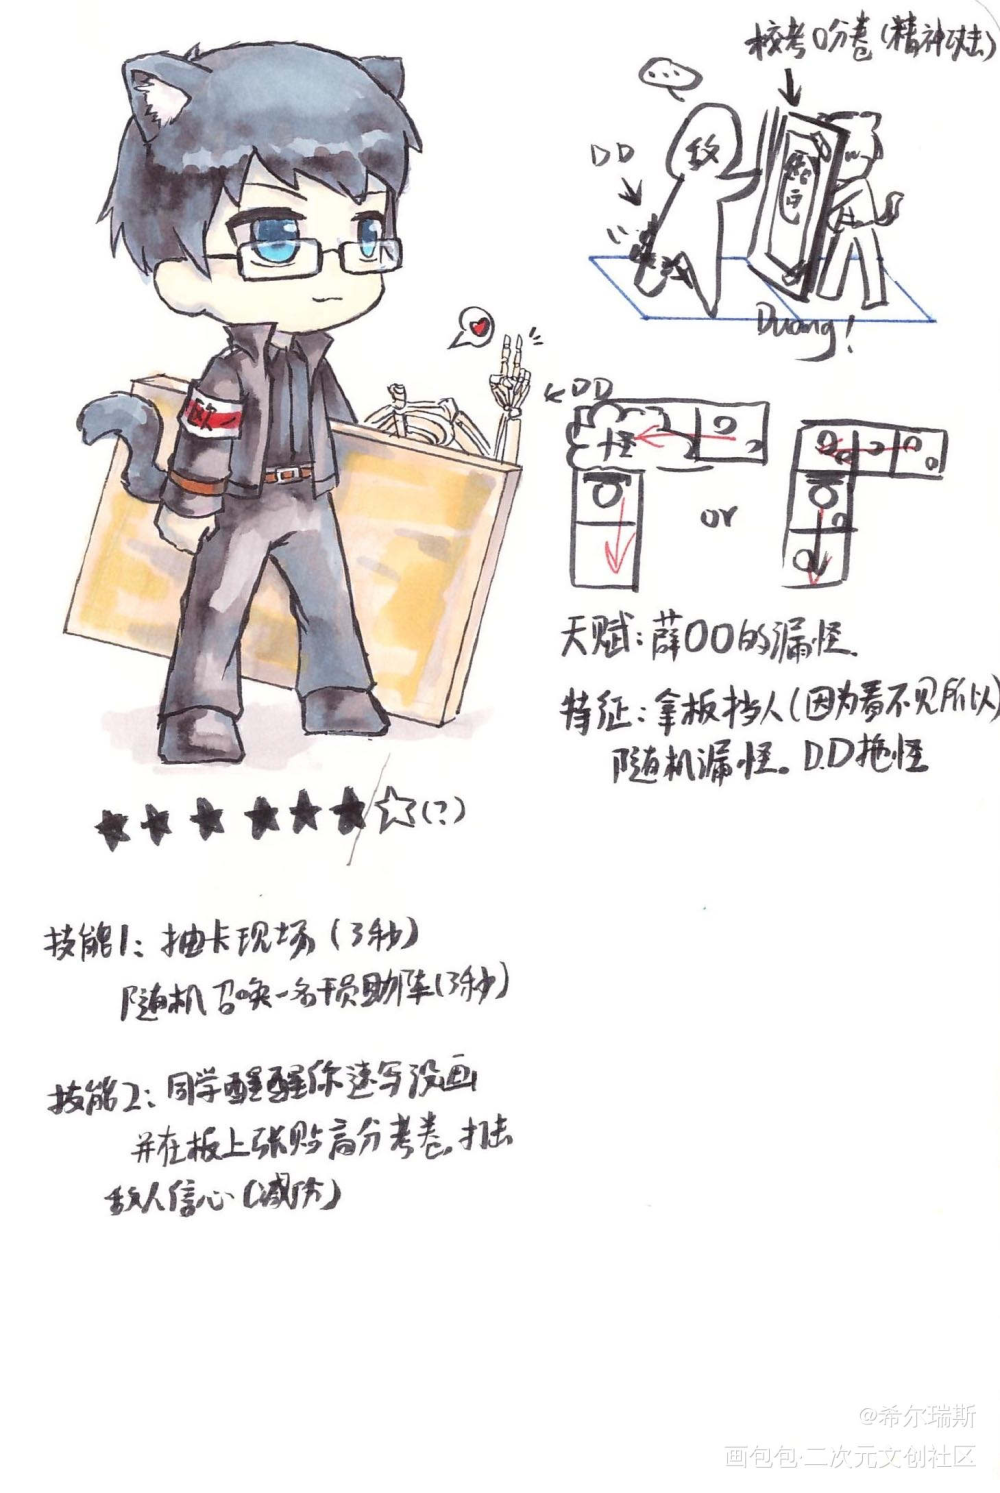 校考0分卷(精神攻击)
...
敌
DD
Duang!
DD
怪
or
天赋:薛OO的漏怪.
特征:拿板挡人(因为看不见所以)
随机漏怪。D.D拖怪
欧
(?)
技能1:抽卡现场(3秒)
随机召唤一名干员助阵(3秒)
技能2:同学醒醒你速写没画
并在板上张贴高分考卷.打击
敌人信心(减防)
@希尔瑞斯
画包包·二次元文创社区